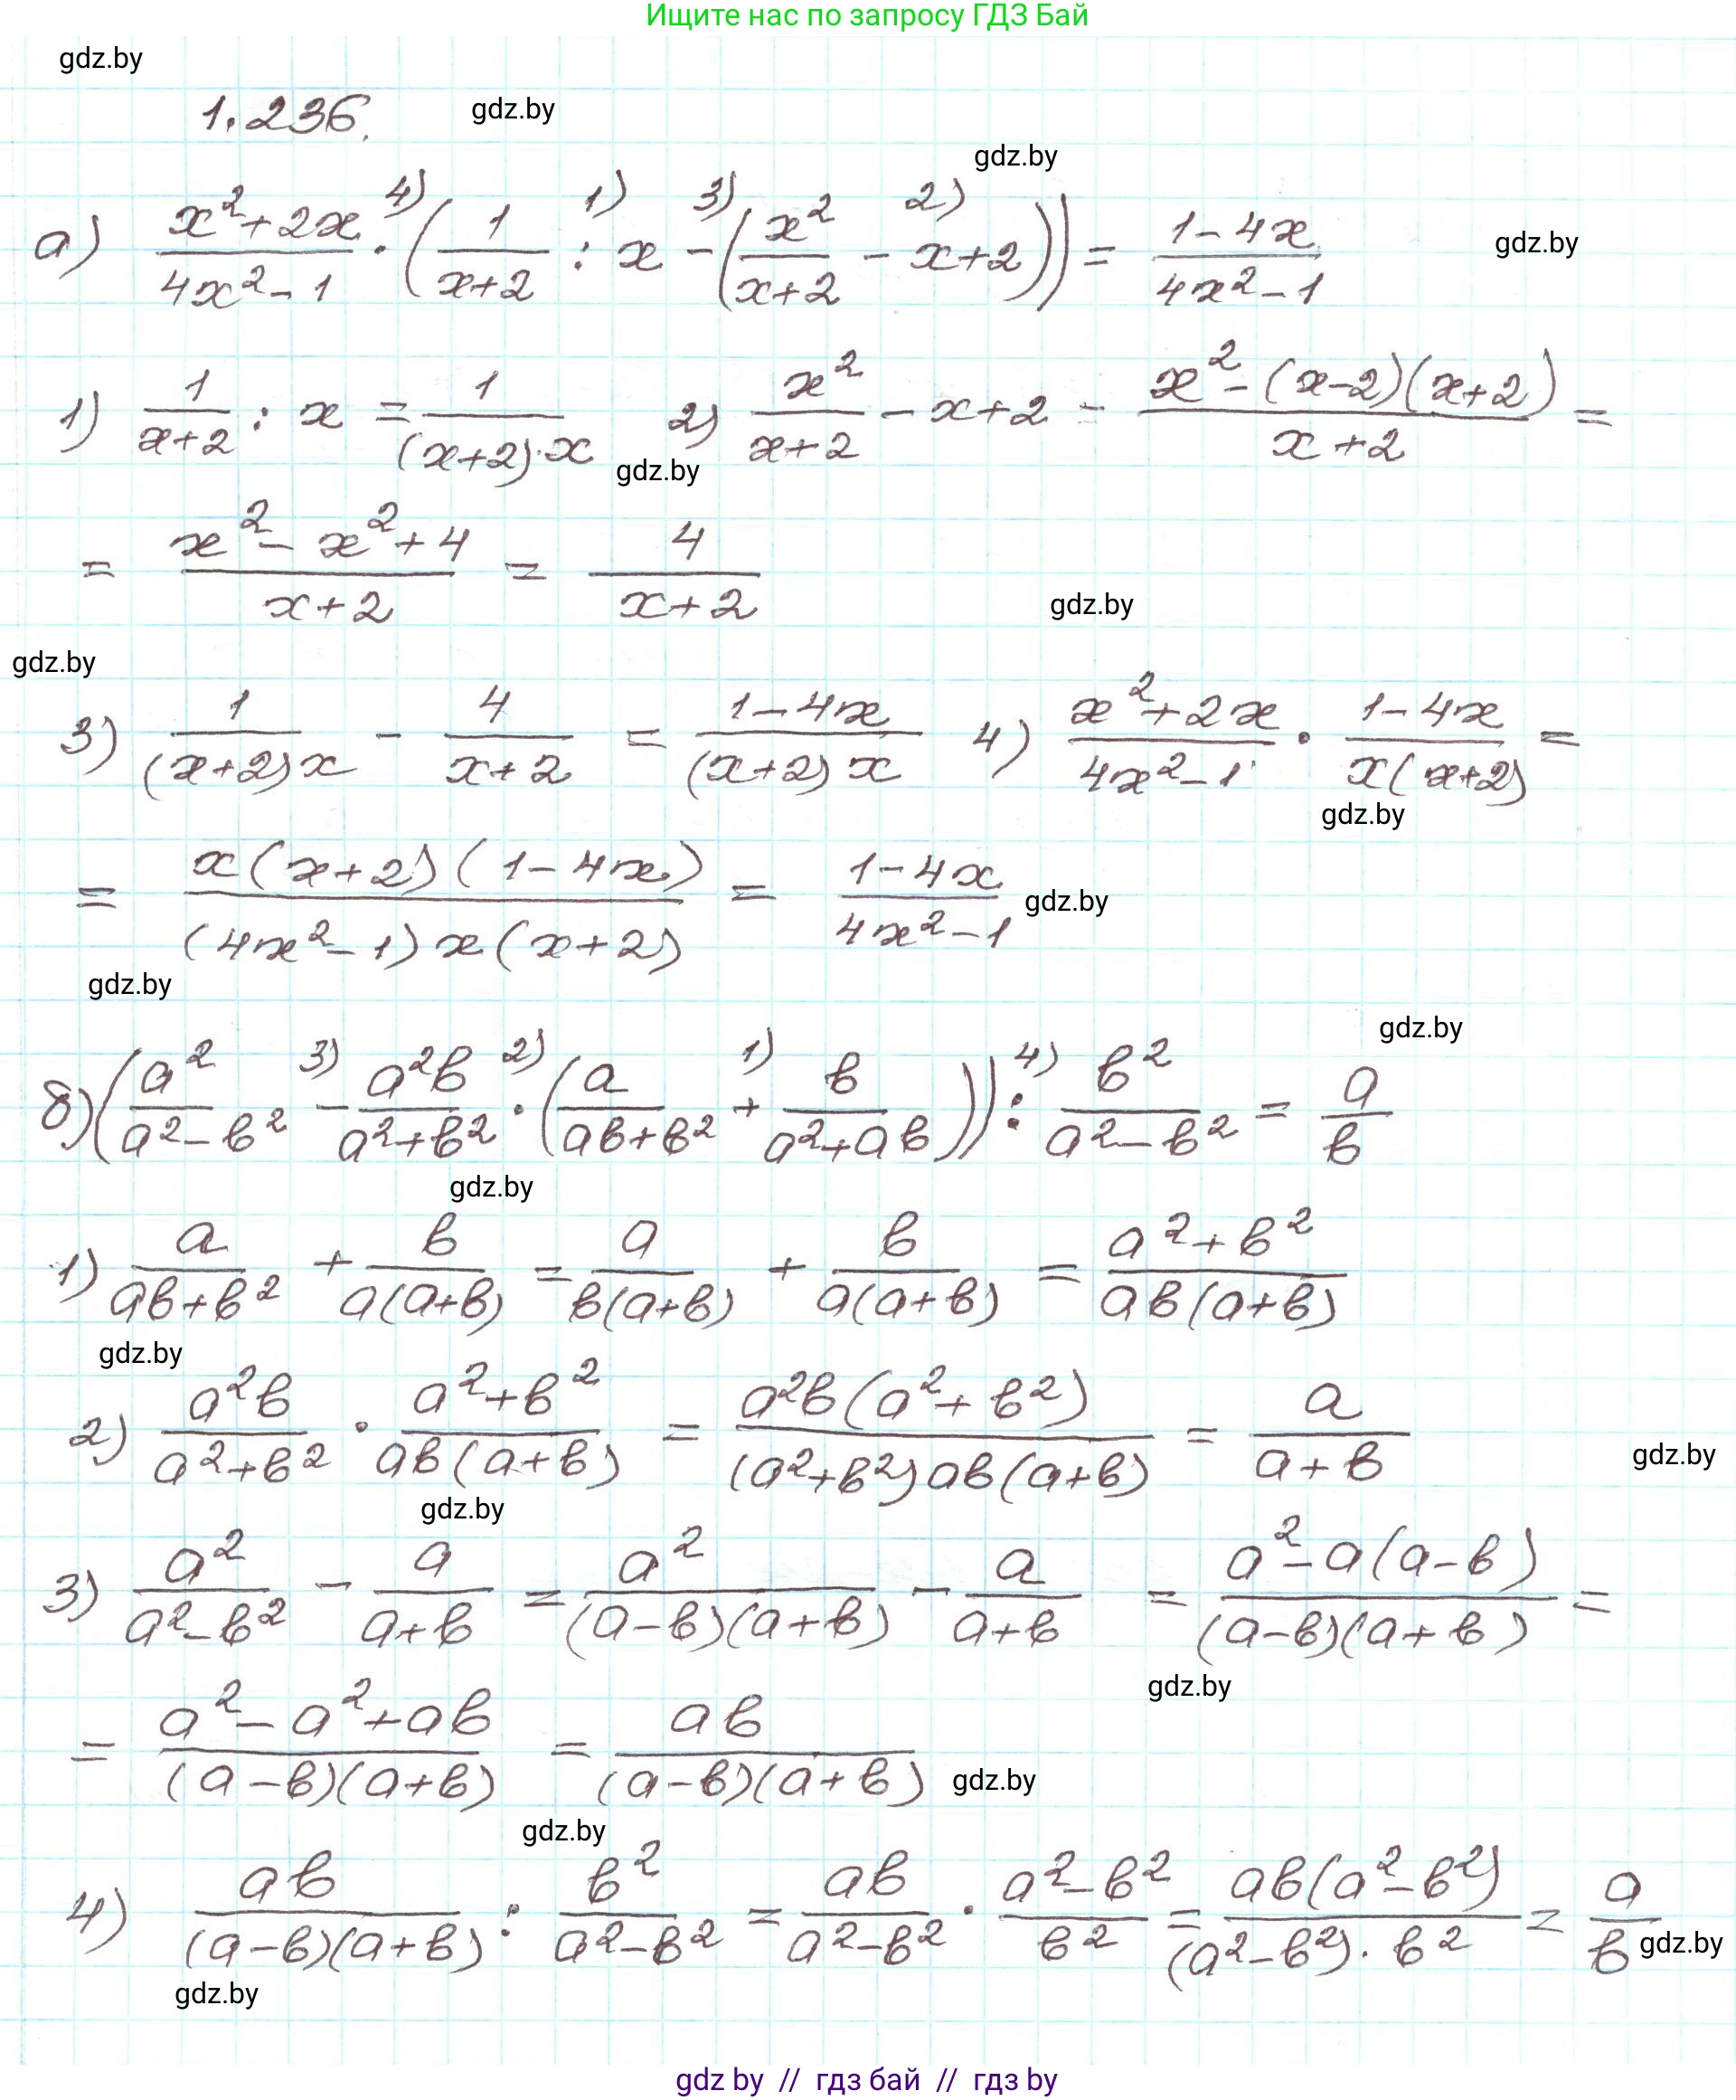 Ищите нас по запросу ГДЗ Бай
gdz.by
1.236.
gdz.by
gdz.by
а) (x²+2x)/(4x²-1) ⁴⁾· (1/(x+2) ¹⁾: x ³⁾- (x²/(x+2) ²⁾- x+2)) = (1-4x)/(4x²-1)
gdz.by
1) 1/(x+2) : x = 1/((x+2)·x) 2) x²/(x+2) - x+2 = (x²-(x-2)(x+2))/(x+2) =
gdz.by
= (x²-x²+4)/(x+2) = 4/(x+2)
gdz.by
gdz.by
3) 1/((x+2)x) - 4/(x+2) = (1-4x)/((x+2)x) 4) (x²+2x)/(4x²-1) · (1-4x)/(x(x+2)) =
gdz.by
= (x(x+2)(1-4x))/((4x²-1)x(x+2)) = (1-4x)/(4x²-1)
gdz.by
gdz.by
gdz.by
б) (a²/(a²-b²) ³⁾- a²b/(a²+b²) ²⁾· (a/(ab+b²) ¹⁾+ b/(a²+ab))) ⁴⁾: b²/(a²-b²) = a/b
gdz.by
1) a/(ab+b²) + b/(a(a+b)) = a/(b(a+b)) + b/(a(a+b)) = (a²+b²)/(ab(a+b))
gdz.by
2) a²b/(a²+b²) · (a²+b²)/(ab(a+b)) = (a²b(a²+b²))/((a²+b²)ab(a+b)) = a/(a+b)
gdz.by
gdz.by
3) a²/(a²-b²) - a/(a+b) = a²/((a-b)(a+b)) - a/(a+b) = (a²-a(a-b))/((a-b)(a+b)) =
gdz.by
= (a²-a²+ab)/((a-b)(a+b)) = ab/((a-b)(a+b))
gdz.by
gdz.by
4) ab/((a-b)(a+b)) : b²/(a²-b²) = ab/(a²-b²) · (a²-b²)/b² = (ab(a²-b²))/((a²-b²)·b²) = a/b
gdz.by
gdz.by
gdz by // гдз бай // гдз by